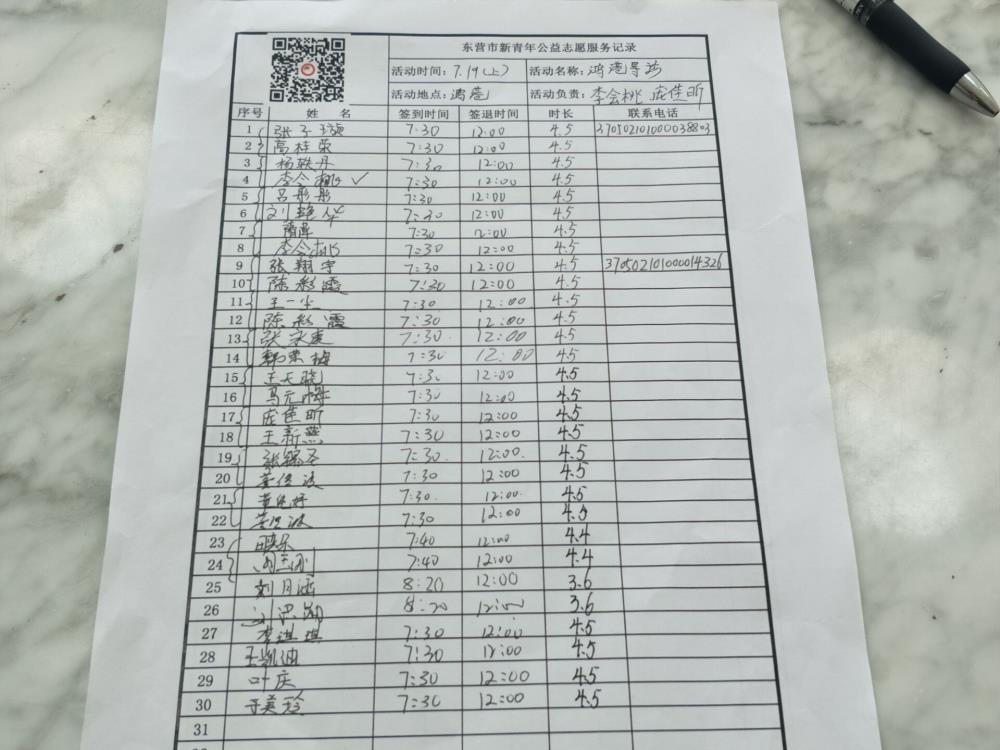 东营市新青年公益志愿服务记录
活动时间：7.19(上) 活动名称：鸿港导游
活动地点：鸿港 活动负责：李会桃 庞佳昕
序号 姓名 签到时间 签退时间 时长 联系电话
1 张子璇 7:30 12:00 4.5 37050210100038803
2 高桂荣 7:30 12:00 4.5
3 杨轶丹 7:30 12:00 4.5
4 李会桃 ✓ 7:30 12:00 4.5
5 吕彤彤 7:30 12:00 4.5
6 刘艳华 7:30 12:00 4.5
7 7:30 12:00 4.5
8 李会桃 7:30 12:00 4.5
9 张翔宇 7:30 12:00 4.5 37050210100014326
10 陈彩霞 7:30 12:00 4.5
11 王一尘 7:30 12:00 4.5
12 陈彩霞 7:30 12:00 4.5
13 张家 7:30 12:00 4.5
14 韩荣梅 7:30 12:00 4.5
15 王天骁 7:30 12:00 4.5
16 马元 7:30 12:00 4.5
17 庞佳昕 7:30 12:00 4.5
18 王新燕 7:30 12:00 4.5
19 张 7:30 12:00 4.5
20 7:30 12:00 4.5
21 7:30 12:00 4.5
22 7:30 12:00 4.5
23 7:40 12:00 4.4
24 7:40 12:00 4.4
25 刘月涵 8:20 12:00 3.6
26 刘 8:20 12:00 3.6
27 李淇琪 7:30 12:00 4.5
28 王凯迪 7:30 12:00 4.5
29 叶庆 7:30 12:00 4.5
30 于美玲 7:30 12:00 4.5
31